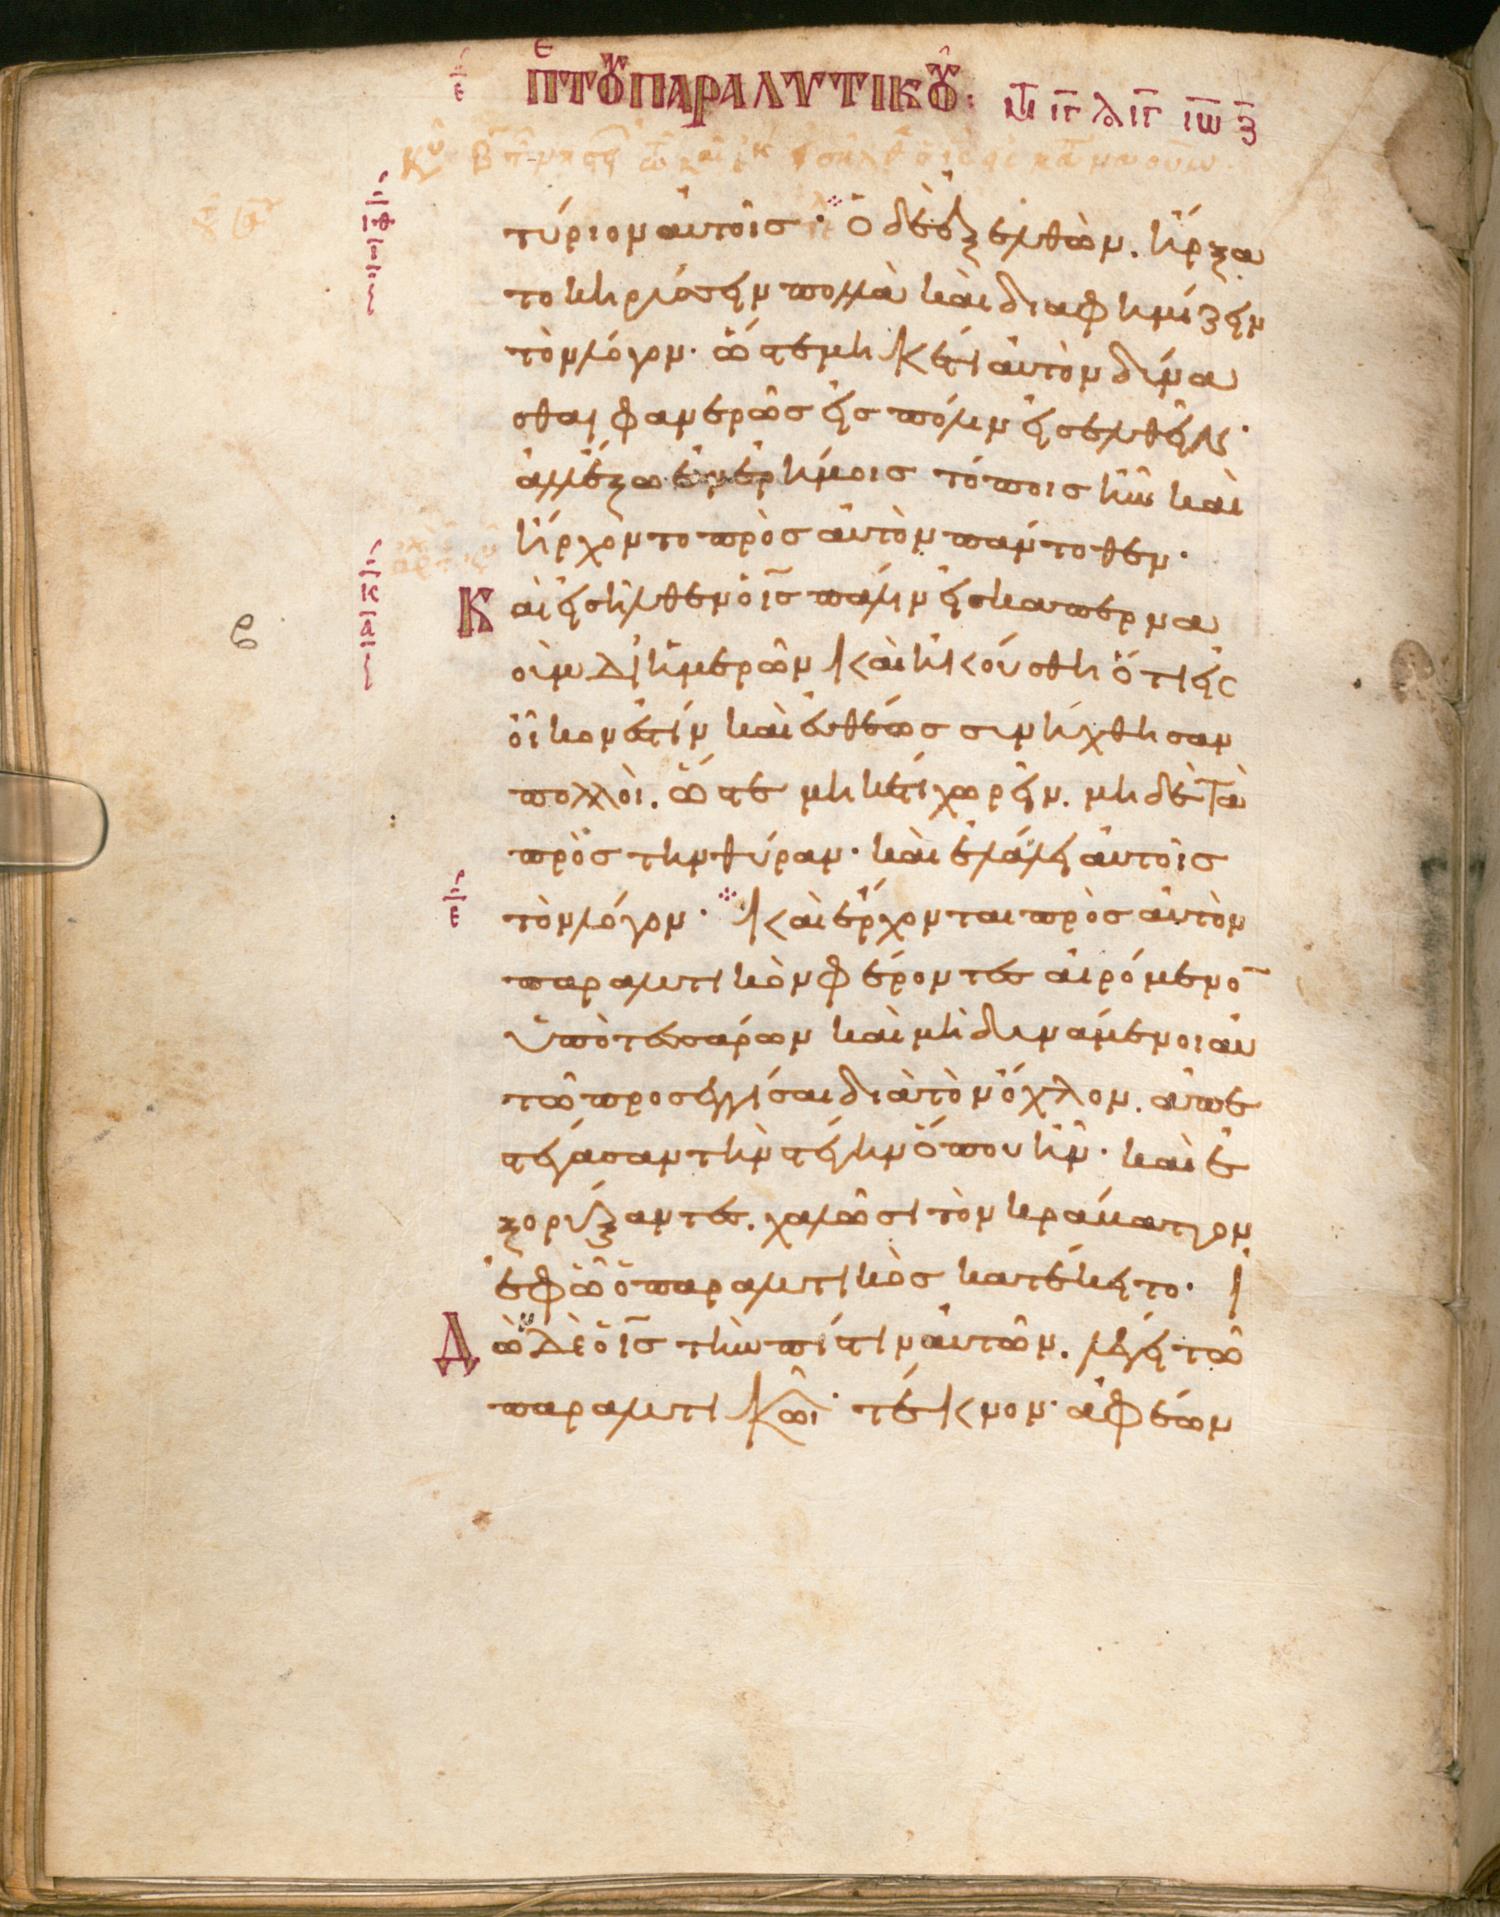 ε π τοῦ παραλυτικοῦ: ΜΤ ιγ λο ιγ ιω ζ
τύριον αὐτοῖσ· ὁ δὲ ἐξελθὼν. ἤρξα
το κηρύσσειν πολλὰ καὶ διαφημίζειν
τὸν λόγον· ὥστε μηκέτι αὐτὸν δύνα
σθαι φανερῶσ εἰσ πόλιν εἰσελθεῖν·
ἀλλ ἔξω ἐν ἐρήμοισ τόποισ ἦν καὶ
ἤρχοντο πρὸσ αὐτὸν πάντοθεν·
Καὶ εἰσῆλθεν ὁ ισ πάλιν εἰσ καπερνα
οὺμ δι ἡμερῶν καὶ ἠκούσθη ὅτι εἰσ
οἶκον ἐστίν καὶ εὐθέωσ συνήχθησαν
πολλοὶ. ὥστε μηκέτι χωρεῖν. μηδὲ τὰ
πρὸσ τὴν θύραν· καὶ ἐλάλει αὐτοῖσ
τὸν λόγον· καὶ ἔρχονται πρὸσ αὐτὸν
παραλυτικὸν φέροντεσ αἰρόμενο̅
ὑπὸ τεσσάρων καὶ μὴ δυνάμενοι αὐ
τῶ προσεγγίσαι διὰ τὸν ὄχλον. ἀπε
στέγασαν τὴν στέγην ὅπου ἦν· καὶ ἐ
ξορύξαντεσ. χαλῶσι τὸν κράβαττον
ἐφ ὧ ὁ παραλυτικὸσ κατέκειτο·
Ἰδὼν δὲ ὁ ισ τὴν πίστιν αὐτῶν. λέγει τῶ
παραλυτικῶι· τέκνον· ἀφέων